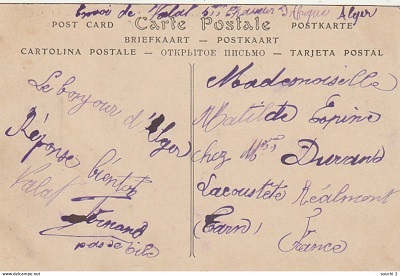 Envoi de Valat 5me Chasseur d'Afrique Alger
POST CARD Carte Postale POSTKARTE
BRIEFKAART — POSTKAART
CARTOLINA POSTALE — ОТКРЫТОЕ ПИСЬМО — TARJETA POSTAL
Le bonjour d'Alger
Réponse bientot
Valat
Fernand
pas de bile
Mademoiselle
Matilde Espine
chez Mr Durand
Lacoustète Réalmont
Tarn
France